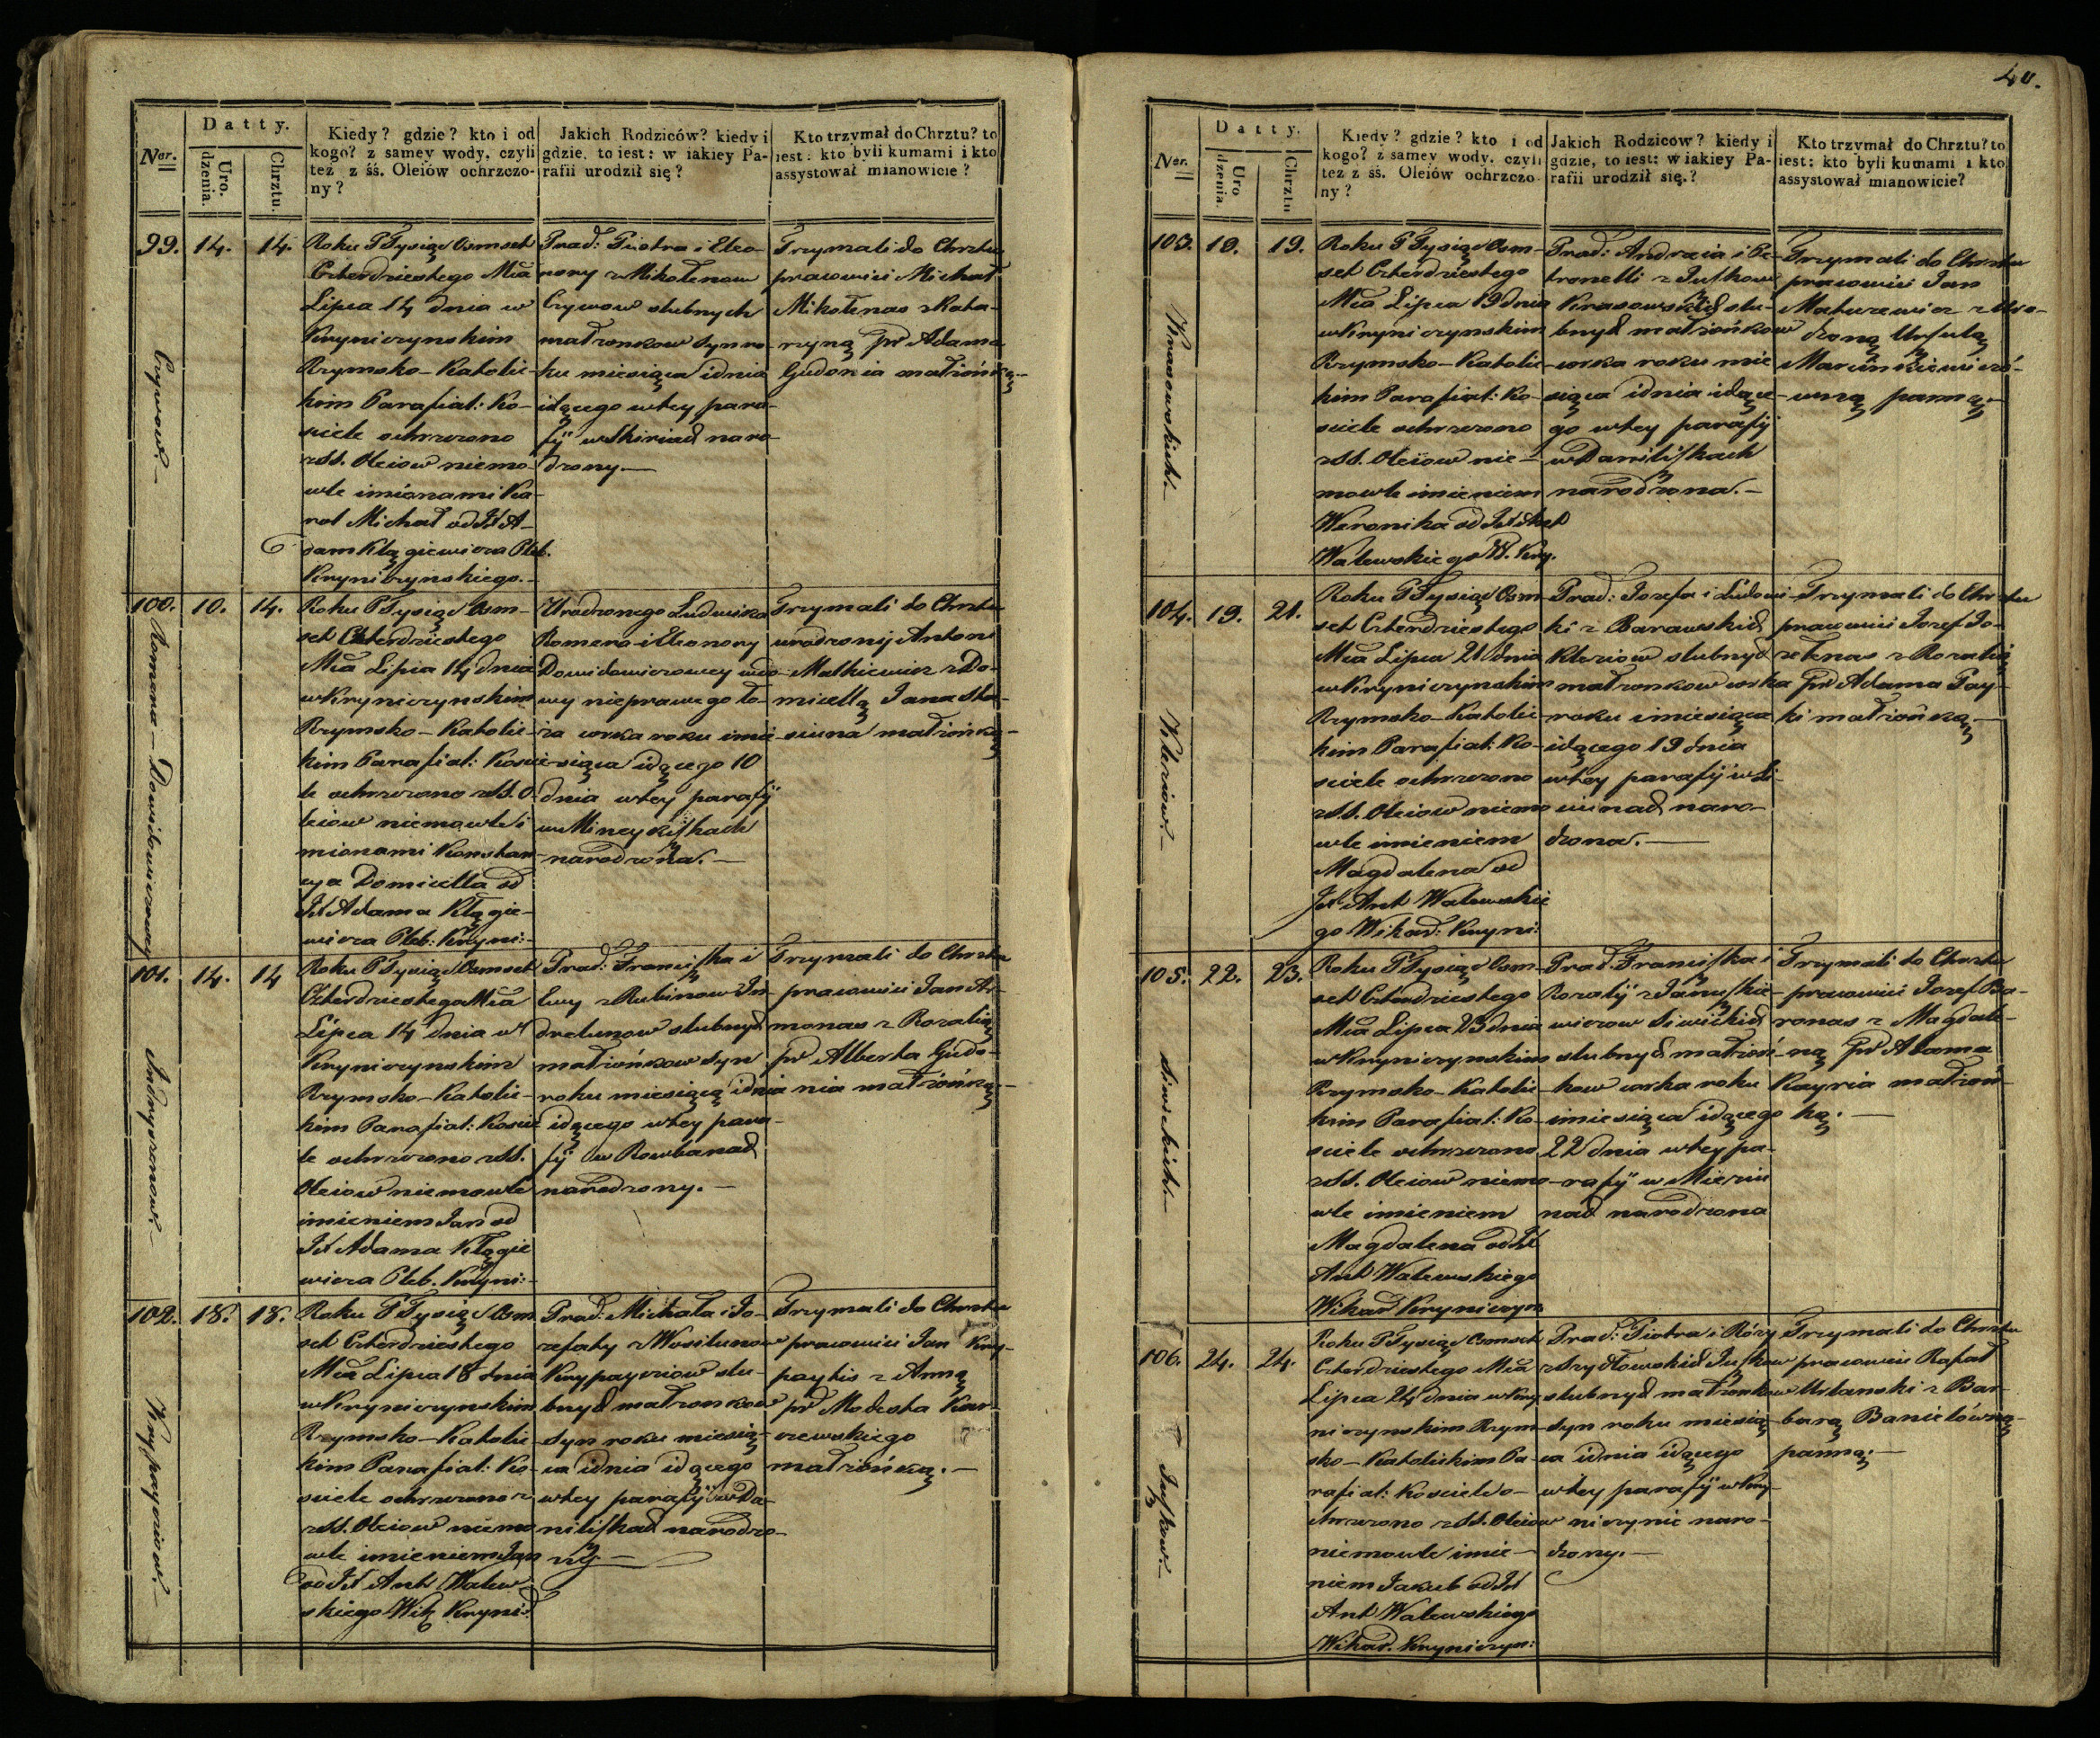 40.
Ner.
Datty.
Uro.
dzenia.
Chrztu.
Kiedy? gdzie? kto i od
kogo? z samey wody, czyli
też z śś. Oleiów ochrzczo-
ny?
Jakich Rodziców? kiedy i
gdzie, to iest: w iakiey Pa-
rafii urodził się?
Kto trzymał do Chrztu? to
iest: kto byli kumami i kto
assystował mianowicie?
99. 14. 14.
Roku P Tysiąc Osmset
Czterdziestego Mca
Lipca 14 dnia w
Kryniczynskim
Rzymsko-Katolic-
kim Parafial: Ko-
sciele ochrzczono
z SS. Oleiow niemo-
wle imionami Ka-
rol Michał od Jd A-
dam Kłągiewicza Pleb.
Kryniczynskiego.-
Prad: Piotra i Eleo-
nory z Mikołenow
Czywow slubnych
małżonkow syn ro-
ku miesiąca i dnia
idącego w tey para-
fij w Skiriach naro-
dzony.-
Trzymali do Chrztu
pracowici Michał
Mikołenas z Kata-
rzyną po Adama
Gudonia małżonką-
100. 10. 14.
Roku P Tysiąc Osm-
set Czterdziestego
Mca Lipca 14 dnia
w Kryniczynskim
Rzymsko-Katolic-
kim Parafial: Kosci-
le ochrzczono z SS. O-
leiow niemowle i
mionami Konstan-
cya Domicella od
Jd Adama Kłągie-
wicza Pleb: Kryni:-
Urodzonego Ludwika
Romera i Eleonory
Dowidowiczowey wdo-
wy nieprawego ło-
ża corka roku i mie-
siąca idącego 10
dnia w tey parafij
w Minceykiszkach
narodzona.-
Trzymali do Chrztu
urodzonij Anton
Malkiewicz z Do-
micellą Jana Sta-
siuna małżonką-
101. 14. 14
Roku P Tysiąc Osmset
Czterdziestego Mca
Lipca 14 dnia w
Kryniczynskim
Rzymsko-Katolic-
kim Parafial: Koscie
le ochrzczono z SS.
Oleiow niemowle
imieniem Jan od
Jd Adama Kłągie
wicza Pleb. Kryni:-
Prad: Franciszka i
Ewy z Rubinow In-
drelunow slubnych
małżonkow syn
roku miesiącą i dnia
idącego w tey para-
fij w Rowbanach
narodzony.-
Trzymali do Chrztu
pracowici Jan Ar-
monas z Rozalią
po Alberta Gudo-
nia małżonką.-
102. 18. 18.
Roku P Tysiąc Osm
set Czterdziestego
Mca Lipca 18 dnia
w Kryniczynskim
Rzymsko-Katolic-
kim Parafial: Ko-
sciele ochrzczono z
z SS. Oleiow niemo
wle imieniem Jan
od Jd Ant Walew
skiego Wik Kryni:
Prad: Michała i Jo-
zefaty z Wasilunow
Krypayciow slu-
bnych małżonkow
syn roku miesią-
ca i dnia idącego
w tey parafij w Da-
niliszkach narodzo-
ny.-
Trzymali do Chrztu
pracowici Jan Kry-
paytis z Anną
po Modesta Kar-
czewskiego
małżonką.-
103. 19. 19.
Krasowskich.-
Roku P Tysiąc Osm-
set Czterdziestego
Mca Lipca 19 dnia
w Kryniczynskim
Rzymsko-Katolic-
kim Parafial: Ko-
sciele ochrzczono
z SS. Oleiow nie-
mowle imieniem
Weronika od Jd Ant
Walewskiego W. Kry.
Prad: Andrzeia i Pe-
tronelli z Juszkow
Krasowskich slu-
bnych małżonkow
corka roku mie
siąca i dnia idące-
go w tey parafij
w Daniliszkach
narodzona.-
Trzymali do Chrztu
pracowici Jan
Maturewicz z Uro-
dzoną Urszulą
Marcinkiewiczó-
wną panną.-
104. 19. 21.
Roku P Tysiąc Osm-
set Czterdziestego
Mca Lipca 21 dnia
w Kryniczynskim
Rzymsko-Katolic-
kim Parafial: Ko-
sciele ochrzczono
z SS. Oleiow niemo
wle imieniem
Magdalena od
Jd Ant Walewskie
go Wikar: Kryni:
Prad: Jozefa i Ludowi-
ki z Barawskich
Kleriow slubnych
małżonkow corka
roku i miesiąca
idącego 19 dnia
w tey parafij w Li-
ciunach naro-
dzona.-
Trzymali do Chrztu
pracowici Jozef Jo-
zelenas z Rozalią
po Adama Pay-
ki małżonką.-
105. 22. 23.
Siwickich.-
Roku P Tysiąc Osm-
set Czterdziestego
Mca Lipca 23 dnia
w Kryniczynskim
Rzymsko-Katolic-
kim Parafial: Ko-
sciele ochrzczono
z SS. Oleiow niemo-
wle imieniem
Magdalena od Jd
Ant Walewskiego
Wikar Kryniczyn
Prad: Franciszka i
Rozalij z Januszkie-
wiczow Siwickich
slubnych małżon-
kow corka roku
i miesiąca idącego
22 dnia w tey pa-
rafij w Miezin
nach narodzona
Trzymali do Chrztu
pracowici Jozef Ba-
ronas z Magdale-
ną po Adama
Kayria małżon-
ką.-
106. 24. 24.
Juszkow.-
Roku P Tysiąc Osmset
Czterdziestego Mca
Lipca 24 dnia w Kry
niczynskim Rzym-
sko-Katolickim Pa-
rafial: Kosciele o-
chrzczono z SS. Oleiow
niemowle imie-
niem Jakub od Jd
Ant Walewskiego
Wikar. Kryniczyn:
Prad: Piotra i Róży
z Szydłowskich Juszkow
slubnych małżonkow
syn roku miesią-
ca i dnia idącego
w tey parafij w Kry-
niczynie naro-
dzony.-
Trzymali do Chrztu
pracowici Rafał
Urlanski z Bar-
barą Banielówną-
panną.-